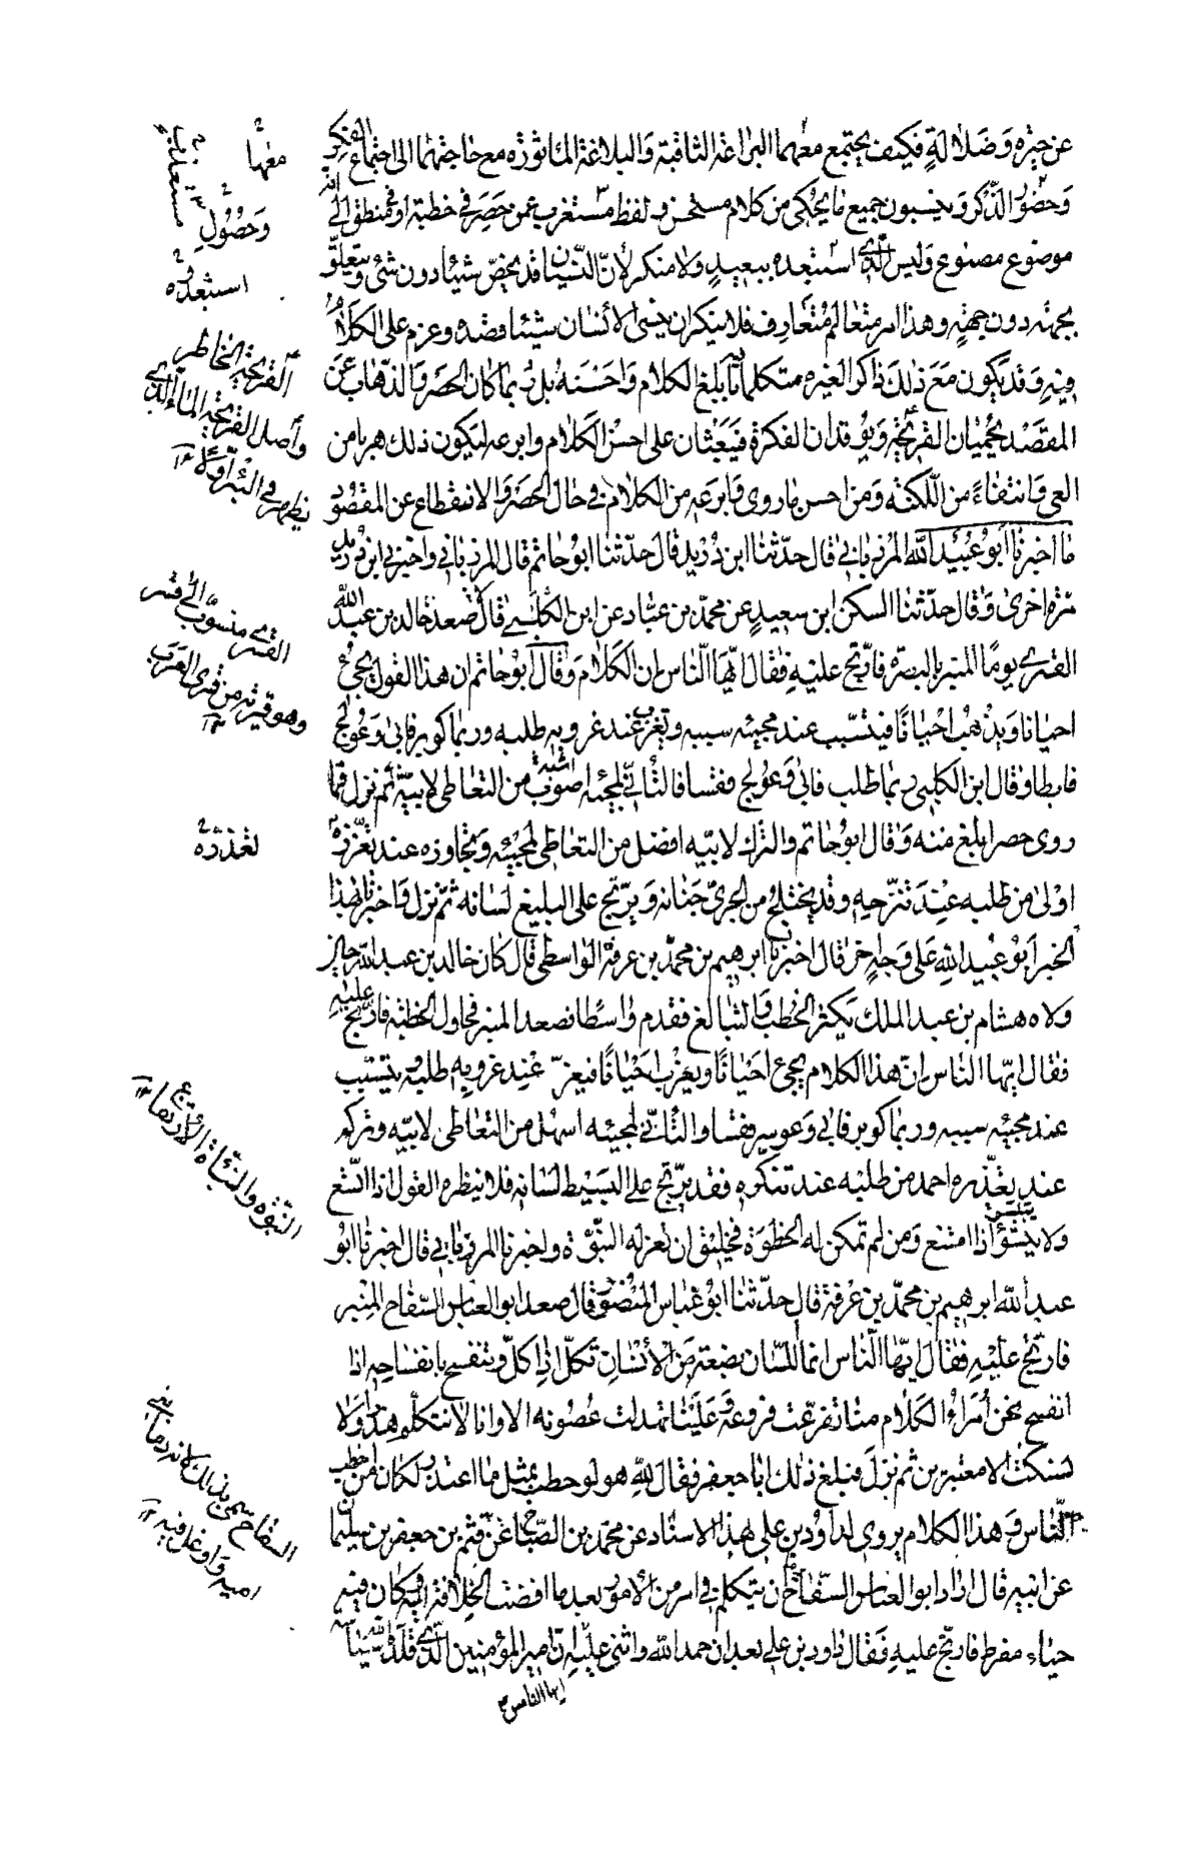 عن حيرة وضلالة فكيف يجتمع معهما البراعة الثاقبة والبلاغة المأثورة مع حاجتهما الى اجتماع الفكر
وحضور الذكر وينسبون جميع ما يحكى من كلام مستحسن ولفظ مستغرب عمن حصر في خطبة او في منطق الى انه
موضوع مصنوع وليس الذي استبعدوه ببعيد ولا منكر لأن النسيان قد يخص شيئا دون شئ ويتعلق
بجهة دون جهة وهذا امر متعالم متعارف فلا ينكر ان ينسى الأنسان شيئا قصده وعزم على الكلام
فيه وقد يكون مع ذلك ذاكرا لغيره متكلما فيه بأبلغ الكلام واحسنه بل ربما كان الحصر والذهاب عن
القصد يحميان القريحة ويوقدان الفكرة فيبعثان على احسن الكلام وابرعه ليكون ذلك هربا من
العي وانتفاءً من اللكنة ومن احسن ما روي وابرعه من الكلام في حال الحصر والانقطاع عن المقصود
ما اخبرنا ابو عبيد الله المرزباني قال حدثنا ابن دريد قال حدثنا ابو حاتم قال المرزباني واخبرني ابن دريد
مرة اخرى وقال حدثنا السكن ابن سعيد عن محمد بن عباد عن ابن الكلبي قال صعد خالد بن عبد الله
القسري يوما المنبر بالبصرة فارتج عليه فقال ايها الناس ان الكلام وقال ابو حاتم ان هذا القول يجئ
احيانا ويذهب احيانا فيتسبب عند مجيئه سببه ويعزب عند عزوبه طلبه وربما كوبر فابى وعولج
فابطا وقال ابن الكلبي ربما طلب فابى وعولج فقسا فالتأني لمجيئه اصوب من التعاطي لابيّه ثم نزل فما
روي حصرا بلغ منه وقال ابو حاتم والترك لابيه افضل من التعاطي لمجيئه وتجاوزه عند تعزّزه
اولى من طلبه عند تنزحه وقد يختلج من الجرئ جنانه ويرتج على البليغ لسانه ثم نزل واخبرنا بهذا
الخبر ابو عبيد الله على وجه اخر قال اخبرنا ابرهيم بن محمد بن عرفة الواسطي قال كان خالد بن عبد الله حين
ولاه هشام بن عبد الملك يكثر الخطب والتبالغ فقدم واسطا فصعد المنبر فحاول الخطبة فارتج عليه
فقال ايها الناس ان هذا الكلام يجئ احيانا ويعزب احيانا فيعز عند عزوبه طلبه ويتسبب
عند مجيئه سببه وربما كوبر فابى وعوسر فقسا والتأني لمجيئه اسهل من التعاطي لابيه وتركه
عند تعذره احمد من طلبه عند تنكره فقد يرتج على البسيط لسانه فلا ينظره القول اذا اتسع
ولا يتيسر اذا امتنع ومن لم تمكن له الخطوة فخليق ان تعن له النبوّة واخبرنا المرزباني قال اخبرنا ابو
عبد الله ابرهيم بن محمد بن عرفة قال حدثنا ابو عباس المنصوري قال صعد ابو العباس السفاح المنبر
فارتج عليه فقال ايها الناس انما اللسان بضعة من الأنسان تكل اذا كلّ وتنفسح بانفساحه اذا
انفسح نحن امراؤ الكلام منا تفرعت فروعه وعلينا تهدلت غصونه الا وانا لا نتكلم هذرا ولا
نسكت الا معتبرين ثم نزل فبلغ ذلك ابا جعفر فقال لله هو لو خطب بمثل ما اعتذر لكان من اخطب
الناس وهذا الكلام يروى لداود بن علي بهذا الاسناد عن محمد بن الصباح عن قثم بن جعفر بن سليمان
عن ابيه قال اراد ابو العباس السفاح ان يتكلم في امر من الأمور بعد ما افضت الخلافة اليه وكان فيه
حياء مفرط فارتج عليه فقال داود بن علي بعد ان حمد الله واثنى عليه ان امير المؤمنين الذي قلده الله سياسة
ايها الناس
معها
وحصول
استبعده
القريحة الخاطر
واصل القريحة الماء الذي
يظهر في البئر اولا ١٢
القسري منسوب الى قسر
وهو قرية من قرى العرب
١٢
لغذده
السفاح سمي بذلك لانه دماء بني
امية واوغل فيه ١٢